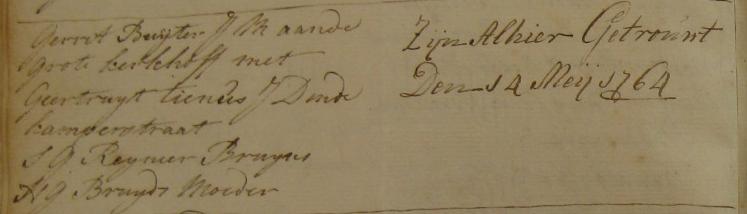 Gerrit Buijter J M aande
Grote kerkhoff met
Geertruyt Lienees J D inde
kamperstraat
S G Reymer Bruyns
N G Bruyds Moeder
Zijn Alhier Getrouwt
Den 14 Meij 1764